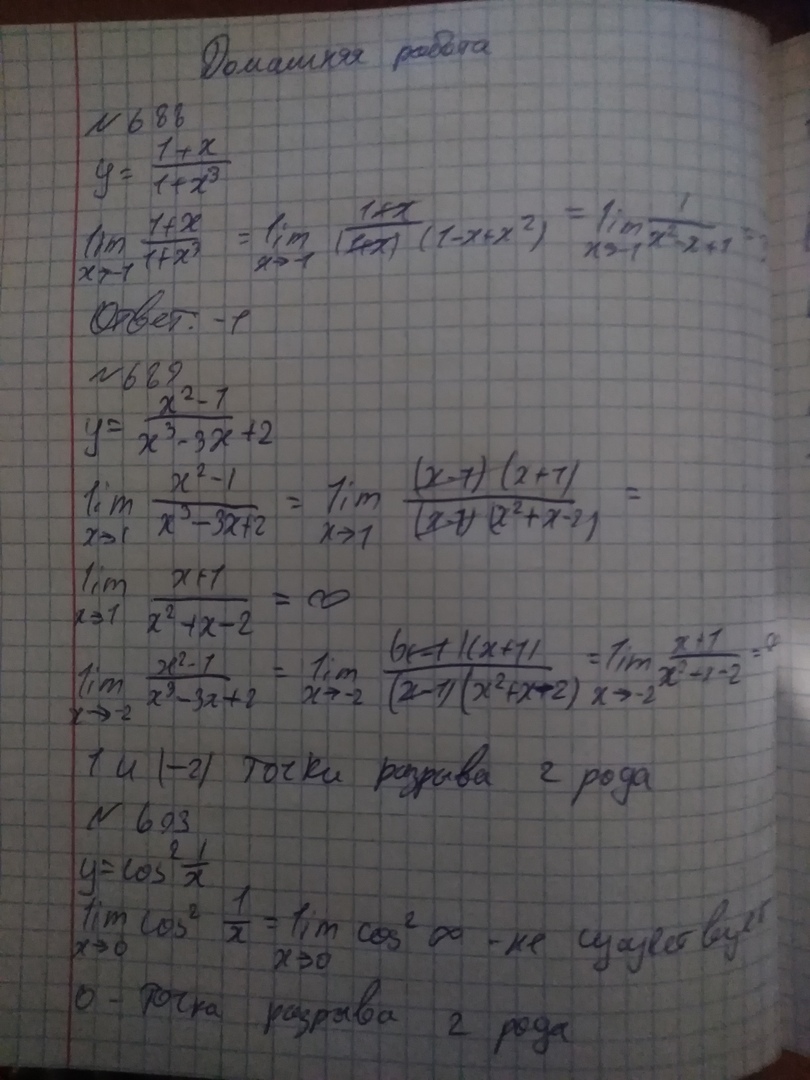 Домашняя работа
№ 688
y = \frac{1+x}{1+x^3}
\lim_{x→-1} \frac{1+x}{1+x^3} = \lim_{x→-1} \frac{1+x}{(1+x)(1-x+x^2)} = \lim_{x→-1} \frac{1}{x^2-x+1} =
Ответ: -1
№ 689
y = \frac{x^2-1}{x^3-3x+2}
\lim_{x→1} \frac{x^2-1}{x^3-3x+2} = \lim_{x→1} \frac{(x-1)(x+1)}{(x-1)(x^2+x-2)} =
\lim_{x→1} \frac{x+1}{x^2+x-2} = ∞
\lim_{x→-2} \frac{x^2-1}{x^3-3x+2} = \lim_{x→-2} \frac{(x-1)(x+1)}{(x-1)(x^2+x-2)} = \lim_{x→-2} \frac{x+1}{x^2+x-2} = ∞
1 и (-2) точки разрыва 2 рода
№ 693
y = cos^2 \frac{1}{x}
\lim_{x→0} cos^2 \frac{1}{x} = \lim_{x→0} cos^2 ∞ - не существует
0 - точка разрыва 2 рода